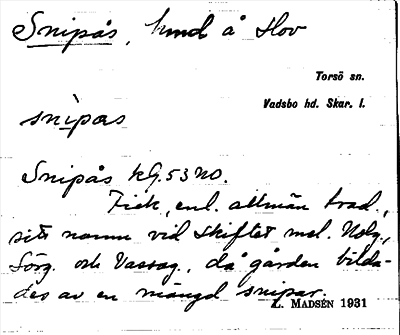 Snipås, hmd å Hov
Torsö sn.
Vadsbo hd. Skar. l.
snìpas
Snipås kG. 53 NO.
Fick, enl. allmän trad.,
sitt namn vid skiftet mel. Nolg.,
Sörg. och Vassag., då gården bilda-
des av en mängd snipar.
L. MADSÉN 1931